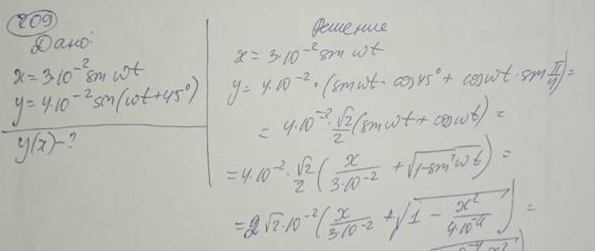 209
Дано:
x = 3·10⁻² sin ωt
y = 4·10⁻² sin(ωt+45°)
y(x) - ?
Решение
x = 3·10⁻² sin ωt
y = 4·10⁻² · (sin ωt · cos 45° + cos ωt · sin π/4) =
= 4·10⁻² · √2/2 (sin ωt + cos ωt) =
= 4·10⁻² · √2/2 (x/(3·10⁻²) + √(1-sin² ωt)) =
= 2√2·10⁻² (x/(3·10⁻²) + √(1 - x²/(4·10⁻⁴))) =